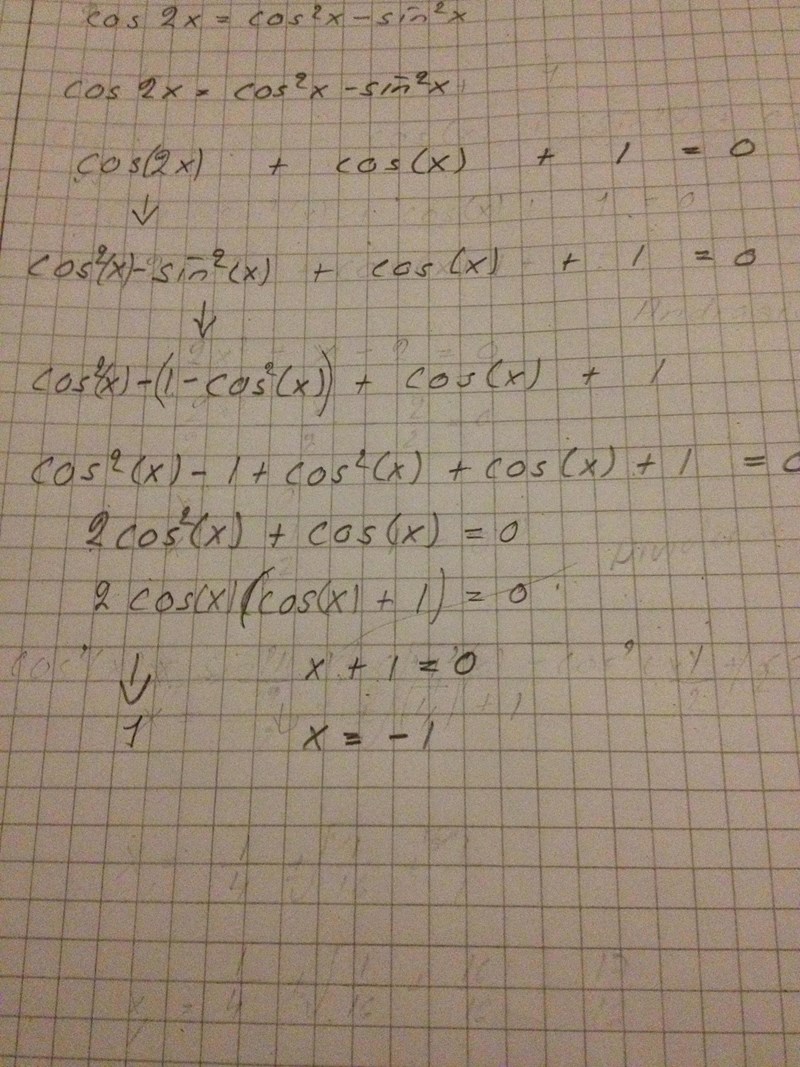 cos 2x = cos²x - sin²x
cos 2x = cos²x - sin²x
cos(2x) + cos(x) + 1 = 0
↓
cos²(x) - sin²(x) + cos(x) + 1 = 0
↓
cos²(x) - (1 - cos²(x)) + cos(x) + 1
cos²(x) - 1 + cos²(x) + cos(x) + 1 = 0
2 cos²(x) + cos(x) = 0
2 cos(x) (cos(x) + 1) = 0
↓ x + 1 = 0
1 x = -1